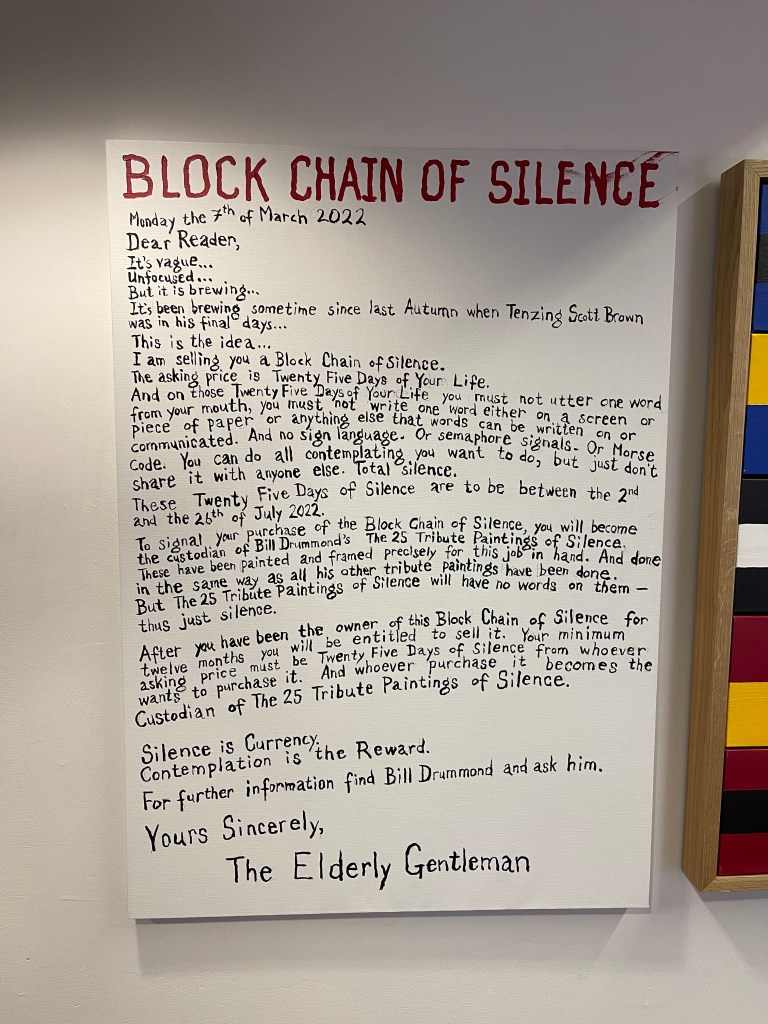 BLOCK CHAIN OF SILENCE
Monday the 7th of March 2022
Dear Reader,
It's vague...
Unfocused...
But it is brewing...
It's been brewing sometime since last Autumn when Tenzing Scott Brown
was in his final days...
This is the idea...
I am selling you a Block Chain of Silence.
The asking price is Twenty Five Days of Your Life.
And on those Twenty Five Days of Your Life you must not utter one word
from your mouth, you must not write one word either on a screen or
piece of paper or anything else that words can be written on or
communicated. And no sign language. Or semaphore signals. Or Morse
Code. You can do all contemplating you want to do, but just don't
share it with anyone else. Total silence.
These Twenty Five Days of Silence are to be between the 2nd
and the 26th of July 2022.
To signal your purchase of the Block Chain of Silence, you will become
the custodian of Bill Drummond's The 25 Tribute Paintings of Silence.
These have been painted and framed precisely for this job in hand. And done
in the same way as all his other tribute paintings have been done.
But The 25 Tribute Paintings of Silence will have no words on them –
thus just silence.
After you have been the owner of this Block Chain of Silence for
twelve months you will be entitled to sell it. Your minimum
asking price must be Twenty Five Days of Silence from whoever
wants to purchase it. And whoever purchase it becomes the
Custodian of The 25 Tribute Paintings of Silence.
Silence is Currency.
Contemplation is the Reward.
For further information find Bill Drummond and ask him.
Yours Sincerely,
The Elderly Gentleman